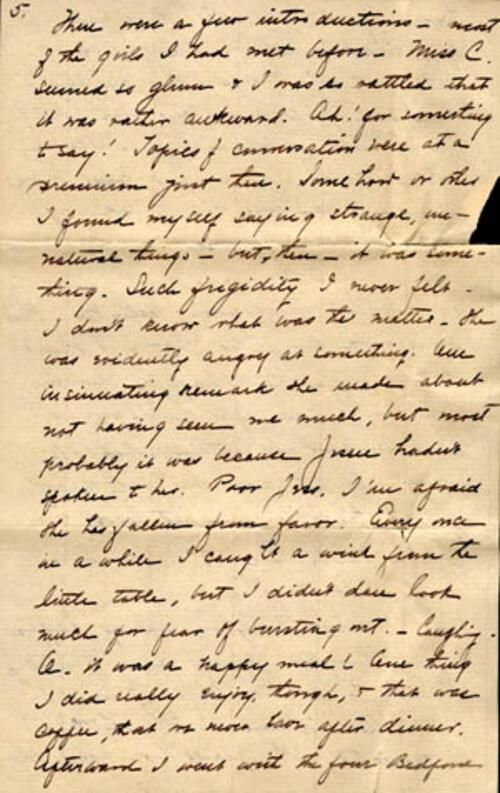 5.
There were a few introductions - most
of the girls I had met before - Miss C.
seemed so glum & I was so rattled that
it was rather awkward. Oh! for something
to say! Topics of conversation were at a
premium just then. Some how or other
I found myself saying strange, un-
natural things - but, then - it was some-
thing. Such frigidity I never felt -
I don't know what was the matter - She
was evidently angry at something. One
insinuating remark she made about
not having seen me much, but most
probably it was because Jessie hadn't
spoken to her. Poor Jess. I'm afraid
she has fallen from favor. Every once
in a while I caught a wink from the
little table, but I didn't dare look
much for fear of bursting out. - laughing.
O. it was a happy meal! One thing
I did really enjoy, though, & that was
coffee, that we never have after dinner.
Afterward I went with the four Bedford